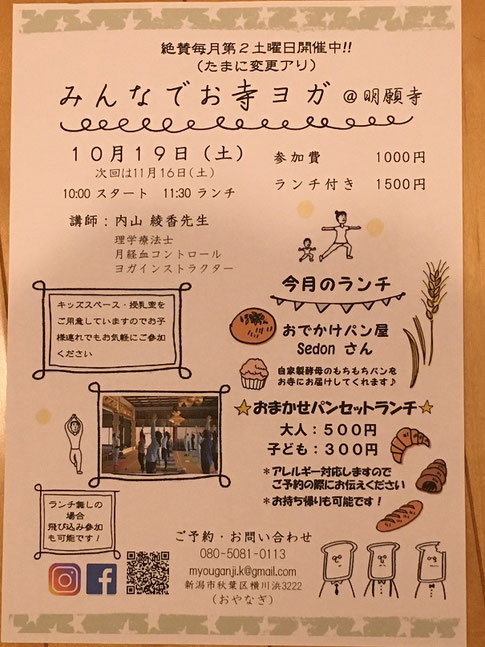 絶賛毎月第２土曜日開催中!!
（たまに変更アリ）
みんなでお寺ヨガ＠明願寺
１０月１９日（土）
次回は11月16日（土）
10:00 スタート　11:30 ランチ
参加費　1000円
ランチ付き　1500円
講師：内山 綾香先生
理学療法士
月経血コントロール
ヨガインストラクター
キッズスペース・授乳室を
ご用意していますのでお子
様連れでもお気軽にご参加
ください
今月のランチ
おでかけパン屋
Sedon さん
自家製酵母のもちもちパンを
お寺にお届けしてくれます♪
★おまかせパンセットランチ★
大人：５００円
子ども：３００円
＊アレルギー対応しますので
ご予約の際にお伝えください
＊お持ち帰りも可能です！
ランチ無しの
場合
飛び込み参加
も可能です！
ご予約・お問い合わせ
080-5081-0113
myouganji.k@gmail.com
新潟市秋葉区横川浜3222
（おやなぎ）